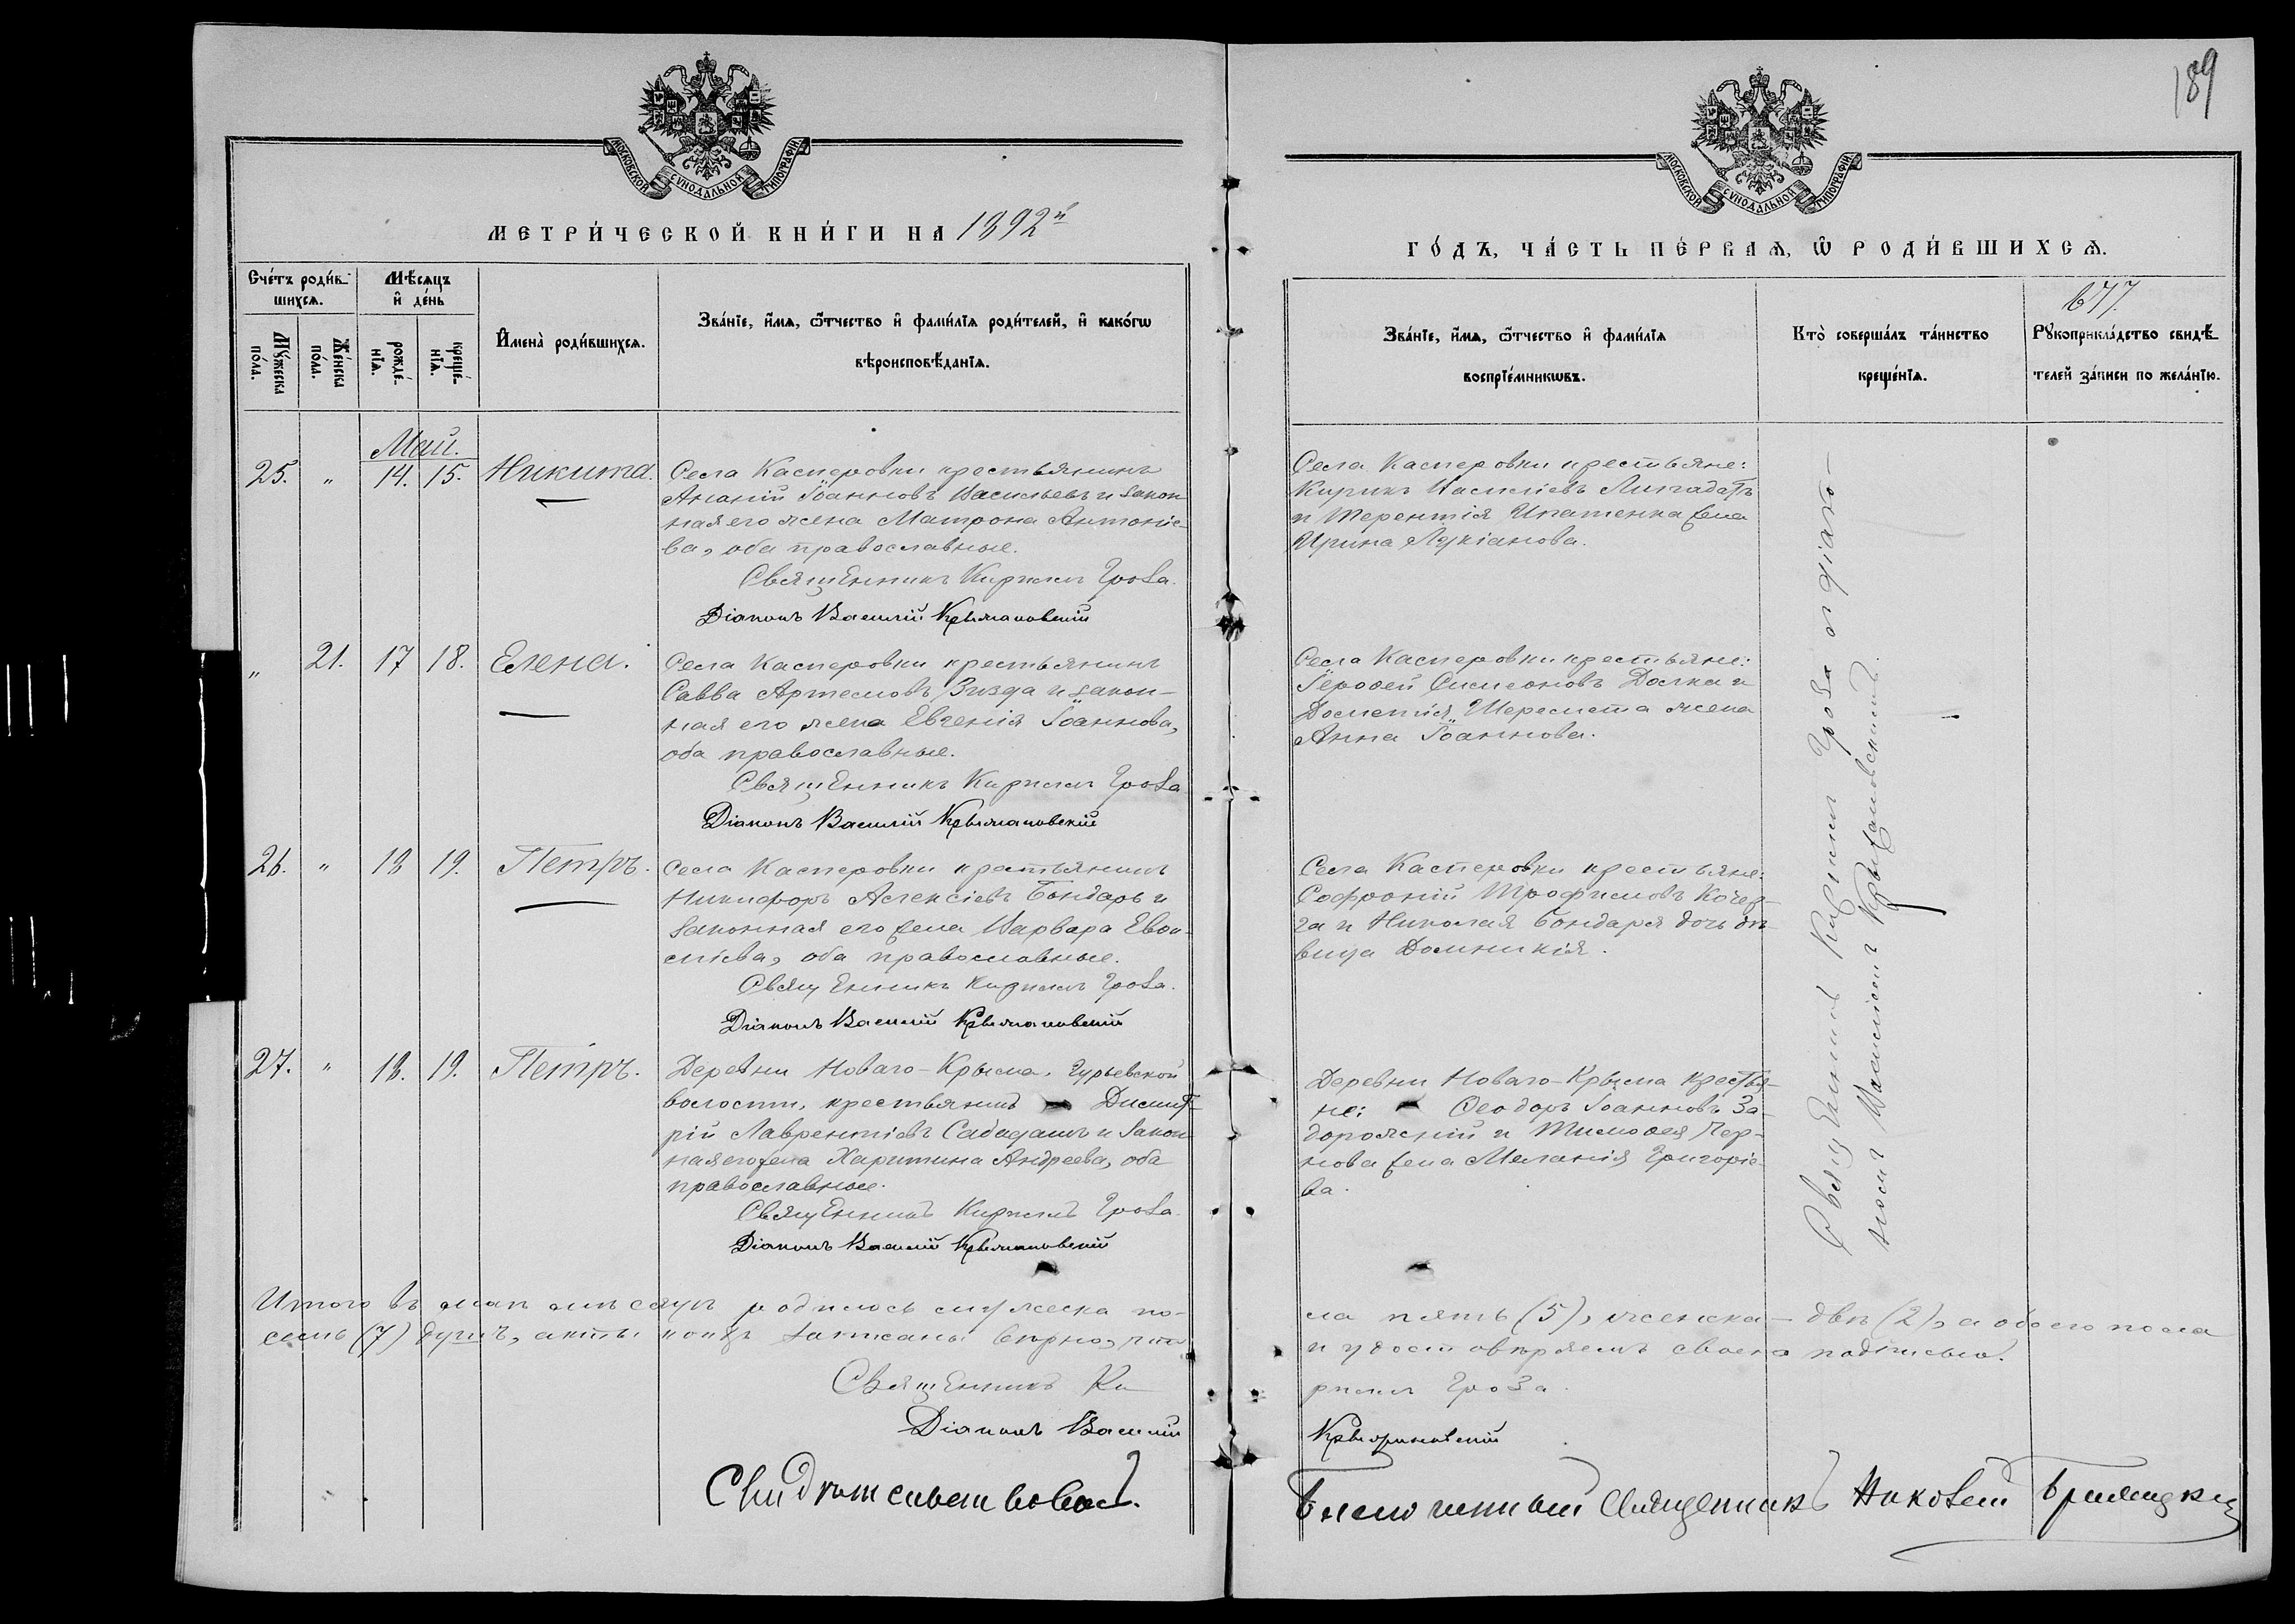 189
МОСКОВСКОЙ СѴНОДАЛЬНОЙ ТИПОГРАФІИ
МОСКОВСКОЙ СѴНОДАЛЬНОЙ ТИПОГРАФІИ
МЕТРИ́ЧЕСКОЙ КНИ́ГИ НА 1892й
ГО́ДЪ, ЧА́СТЬ ПЕ́РВАѦ, Ѿ РОДИ́ВШИХСѦ.
Сче́тъ роди́в-
шихсѧ.
Мꙋ́жеска
по́ла.
Же́нска
по́ла.
Мѣ́сѧцъ
и҆ де́нь
рожде́-
нїѧ.
креще́-
нїѧ.
И҆мена̀ роди́вшихсѧ.
Зва́нїе, и҆́мѧ, ѻ҆́тчество и҆ фами́лїѧ роди́телей, и҆ како́гѡ
вѣроисповѣ́данїѧ.
Зва́нїе, и҆́мѧ, ѻ҆́тчество и҆ фами́лїѧ
воспрїе́мникѡвъ.
Кто̀ соверша́лъ та́инство
креще́нїѧ.
677.
Рꙋкоприкла́дство свидѣ́-
телей за́писи по жела́нїю.
Май.
25. " 14. 15. Никита.
Села Касперовки крестьянинъ
Ананій Іоанновъ Васильевъ и закон
ная его жена Матрона Антоніе-
ва, оба православные.
Священникъ Кириллъ Гроза.
Діаконъ Василій Крыжановскій
Села Касперовки крестьяне:
Кирикъ Василіевъ
и Терентія Ипатенка жена
Ирина Лукіанова.
" 21. 17 18. Елена.
Села Касперовки крестьянинъ
Савва Артемовъ Звизда и закон-
ная его жена Евгенія Іоаннова,
оба православные.
Священникъ Кириллъ Гроза
Діаконъ Василій Крыжановскій
Села Касперовки крестьяне:
Іероѳей Симеоновъ Долка и
Дометія Шеремета жена
Анна Іоаннова.
26. " 18 19. Петръ.
Села Касперовки крестьянинъ
Никифоръ Алексіевъ Бондарь и
законная его жена Варвара Евои-
міева, оба православные.
Священникъ Кириллъ Гроза.
Діаконъ Василій Крыжановскій
Села Касперовки крестьяне:
Софроній Трофимовъ Кочер-
га и Николая Бондаря дочь дѣ-
вица Домникія.
27. " 18. 19. Петръ.
Деревни Новаго-Крыма, Гурьевской
волости, крестьянинъ Димит-
рій Лаврентіевъ Сабадашъ и закон
ная его жена Харитина Андреева, оба
православные.
Священникъ Кириллъ Гроза.
Діаконъ Василій Крыжановскій
Деревни Новаго-Крыма крестья-
не: Ѳеодоръ Іоанновъ За-
дорожній и Тимоѳея Чер-
нова жена Меланія Григоріе-
ва.
Священникъ Кириллъ Гроза съ діако-
номъ Василіемъ Крыжановскимъ.
Итого въ маѣ мѣсяцѣ родилось мужеска по-
ла пять (5), женска – двѣ (2), а обоего пола
семь (7) душъ, акты коихъ записаны вѣрно, что
и удостовѣряемъ своею подписью.
Священникъ Ки
риллъ Гроза.
Діаконъ Василій
Крыжановскій
Свидѣтельствовалъ
Благочинный Священникъ